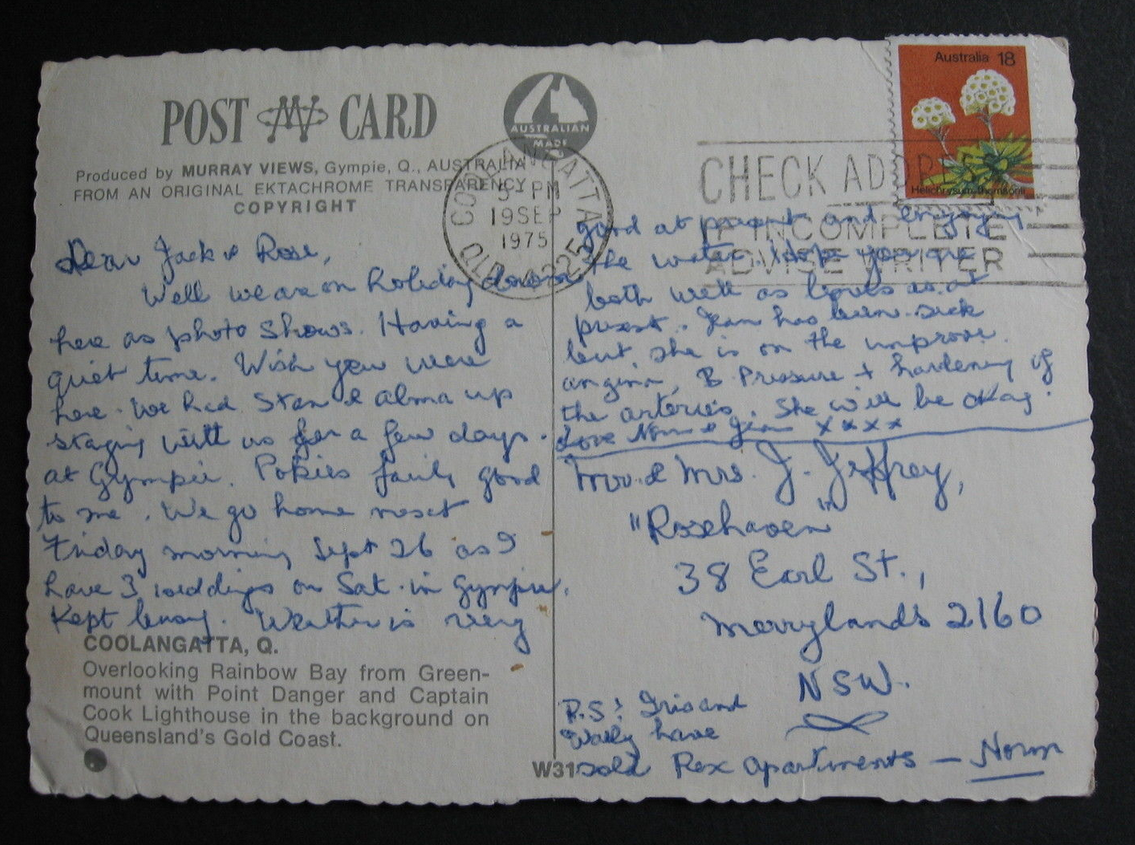 POST CARD
Produced by MURRAY VIEWS, Gympie, Q., AUSTRALIA
FROM AN ORIGINAL EKTACHROME TRANSPARENCY
COPYRIGHT
AUSTRALIAN
MADE
COOLANGATTA
3 - PM
19 SEP
1975
QLD 4225
CHECK ADDRESS
IF INCOMPLETE
ADVISE WRITER
Australia 18
Helichrysum thomsonii
Dear Jack & Rose,
Well we are on holiday down
here as photo shows. Having a
quiet time. Wish you were
here. We had Stan & Alma up
staying with us for a few days.
at Gympie. Pokies fairly good
to me. We go home next
Friday morning Sept 26 as I
have 3 weddings on Sat. in Gympie.
Kept busy. Weather is very
good at present and enjoying
the water. Hope you are
both well as is as at
present. Jean has been sick
but she is on the improve.
angina, B Pressure + hardening of
the arteries. She will be okay.
Love Norm & Jean xxxx
Mr. & Mrs. J. Jeffrey,
"Rosehaven"
38 Earl St.,
Merrylands 2160
NSW.
P.S: Iris and
Wally have
sold Rex Apartments — Norm
COOLANGATTA, Q.
Overlooking Rainbow Bay from Green-
mount with Point Danger and Captain
Cook Lighthouse in the background on
Queensland's Gold Coast.
W31